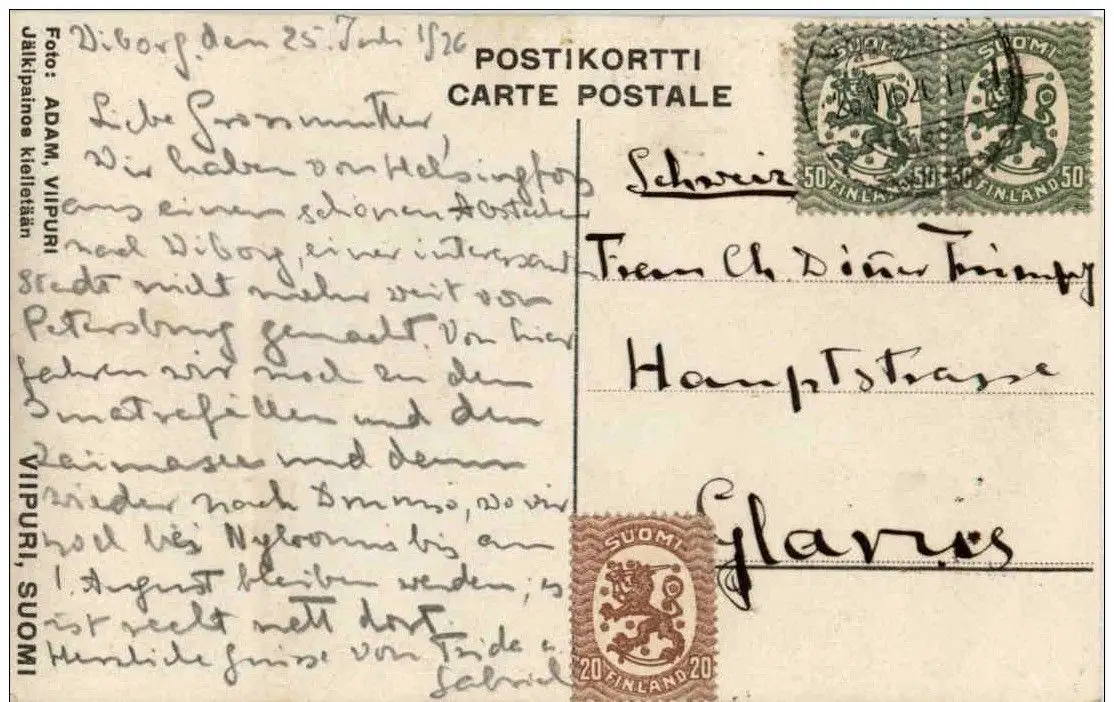 Viborg, den 25. Juli 1926
Liebe Grossmutter,
Wir haben von Helsingfors
aus einen schönen Abstecher
nach Viborg, einer interessanten
Stadt nicht mehr weit von
Petersburg gemacht. Von hier
fahren wir noch zu den
Imatrafällen und den
Saimasee und dann
wieder nach , wo wir
noch bei bis am
1. August bleiben werden; es
ist recht nett dort.
Herzliche Grüsse von Frida u.
Gabriel
Foto: ADAM, VIIPURI
Jälkipainos kielletään
VIIPURI, SUOMI
POSTIKORTTI
CARTE POSTALE
SUOMI
50 FINLAND 50
SUOMI
50 FINLAND 50
Schweiz
Frau Ch. Trümpy
Hauptstrasse
Glarus
SUOMI
20 FINLAND 20